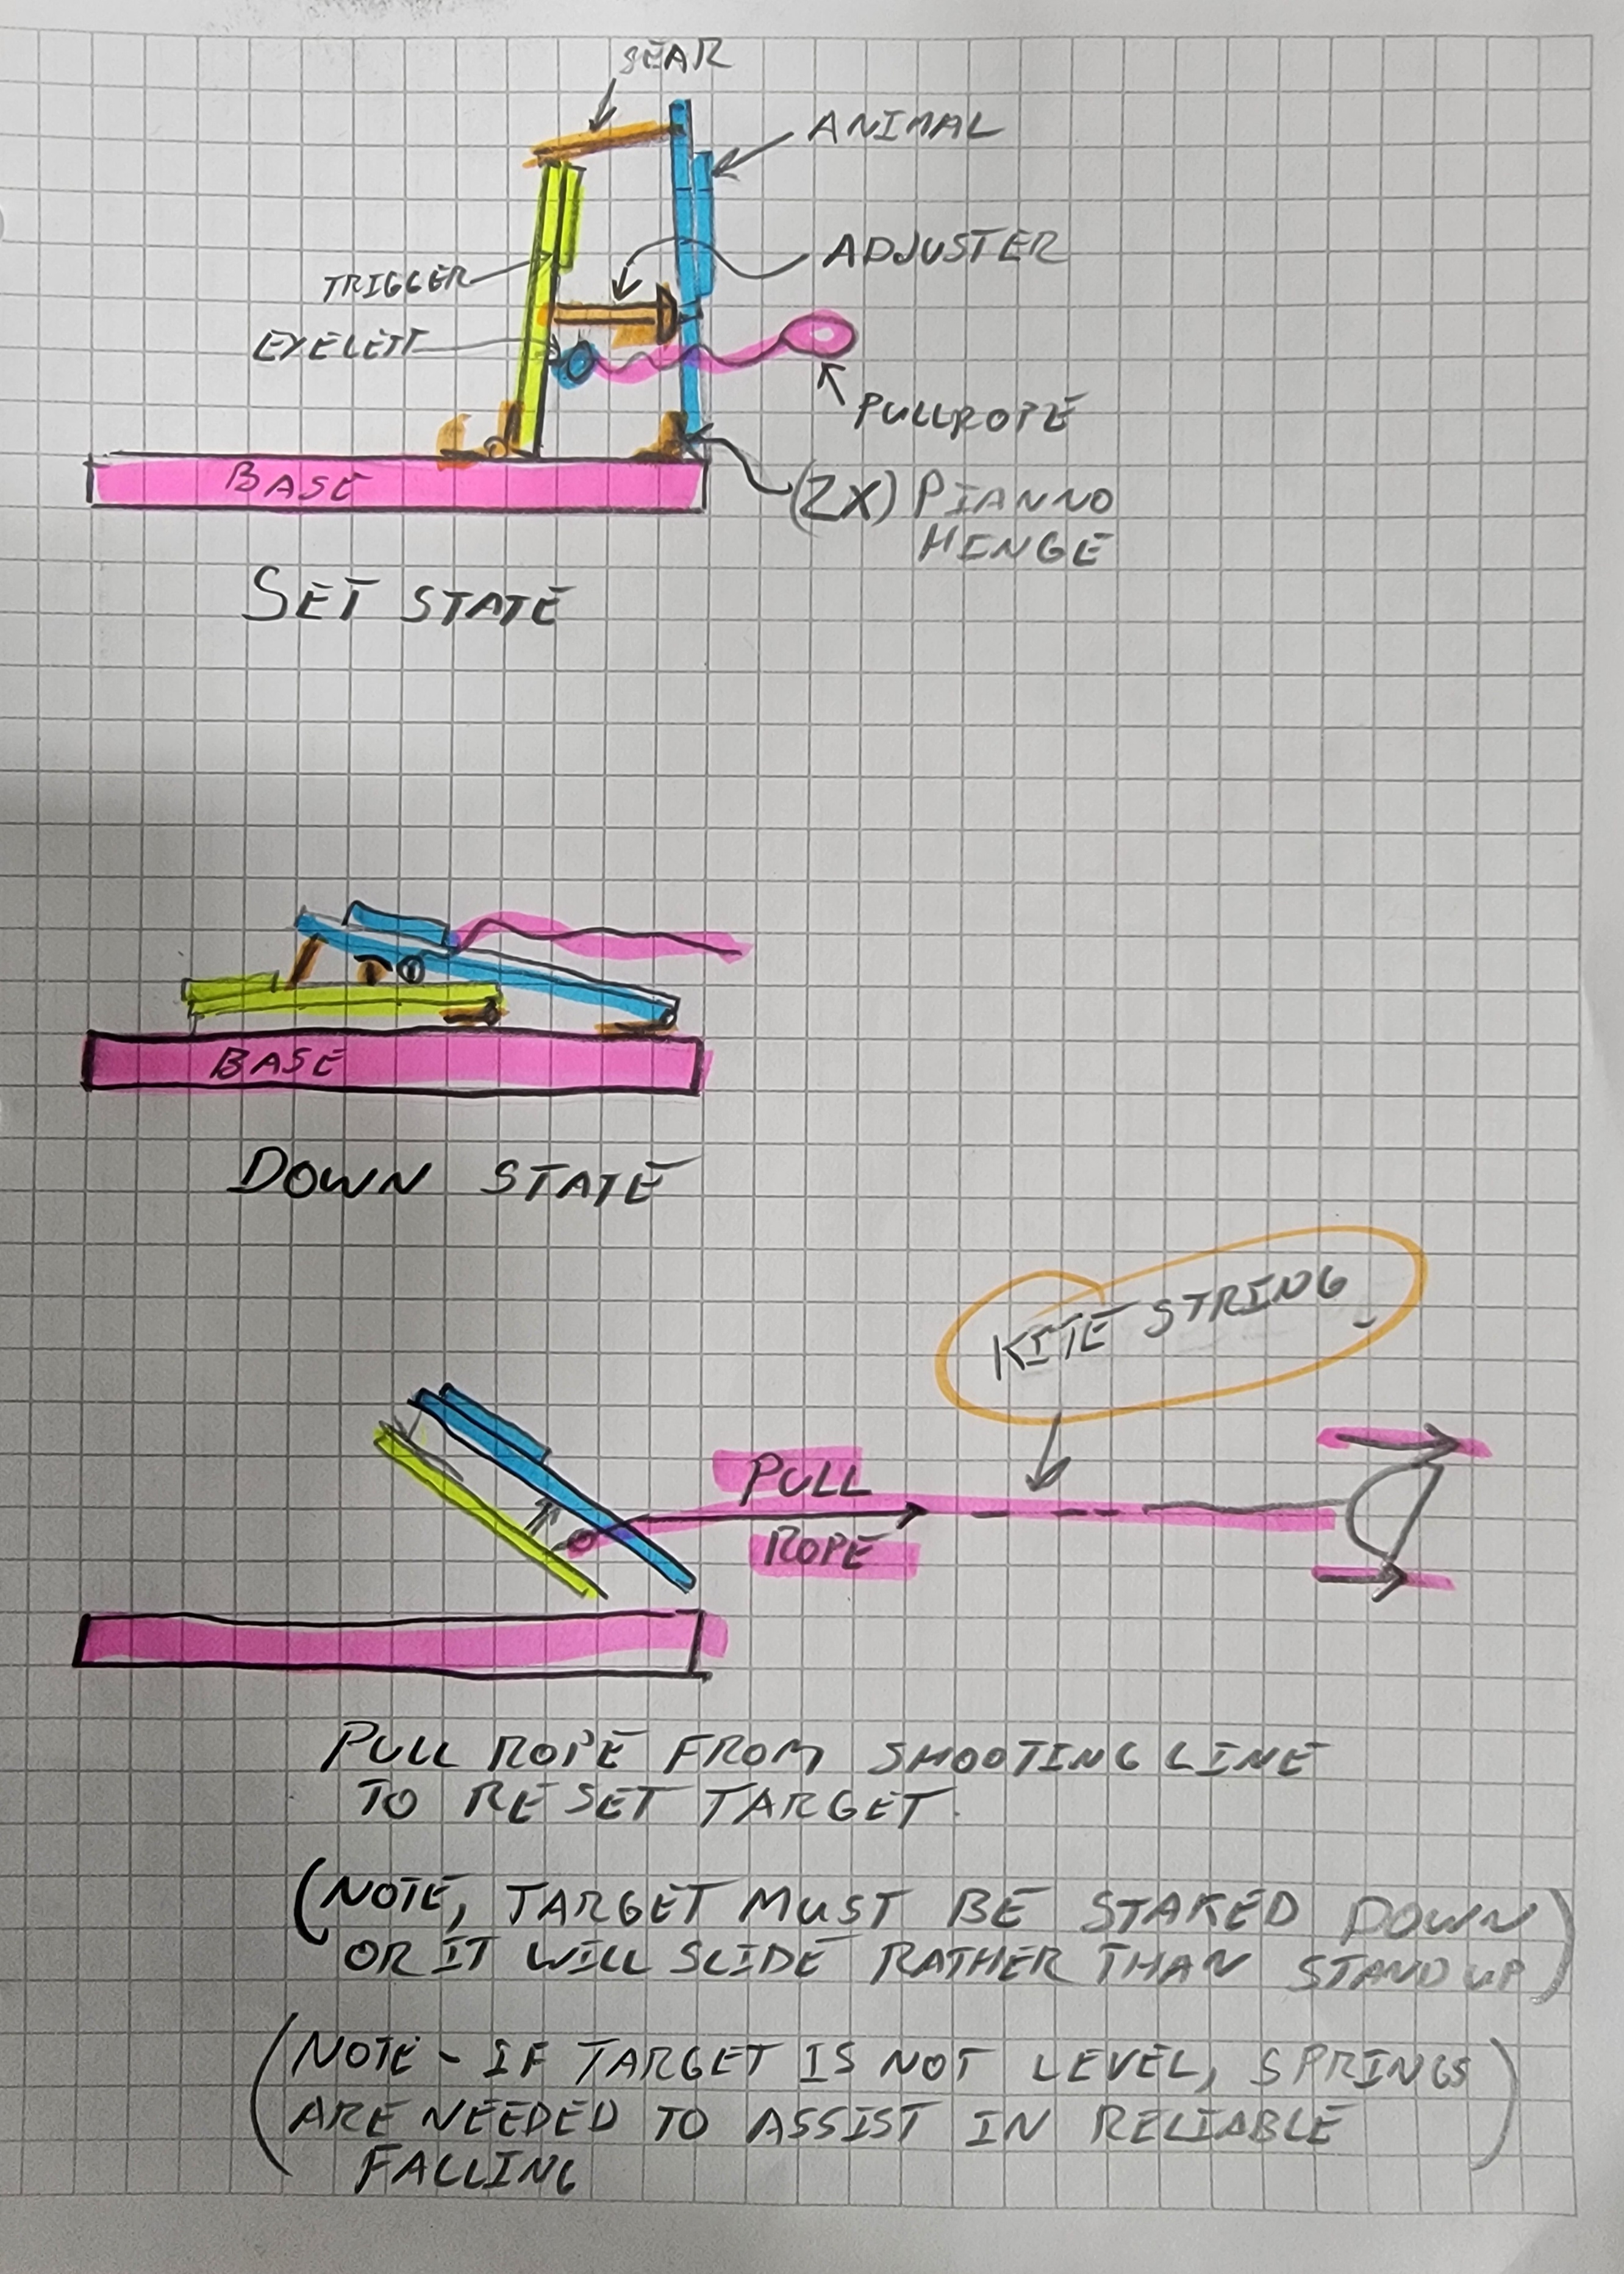 SEAR
ANIMAL
ADJUSTER
TRIGGER
EYELETT
PULLROPE
BASE
(2X) PIANNO
HINGE
SET STATE
BASE
DOWN STATE
KITE STRING
PULL
ROPE
PULL ROPE FROM SHOOTING LINE
TO RESET TARGET.
(NOTE, TARGET MUST BE STAKED DOWN
OR IT WILL SLIDE RATHER THAN STAND UP)
(NOTE - IF TARGET IS NOT LEVEL, SPRINGS
ARE NEEDED TO ASSIST IN RELIABLE
FALLING)